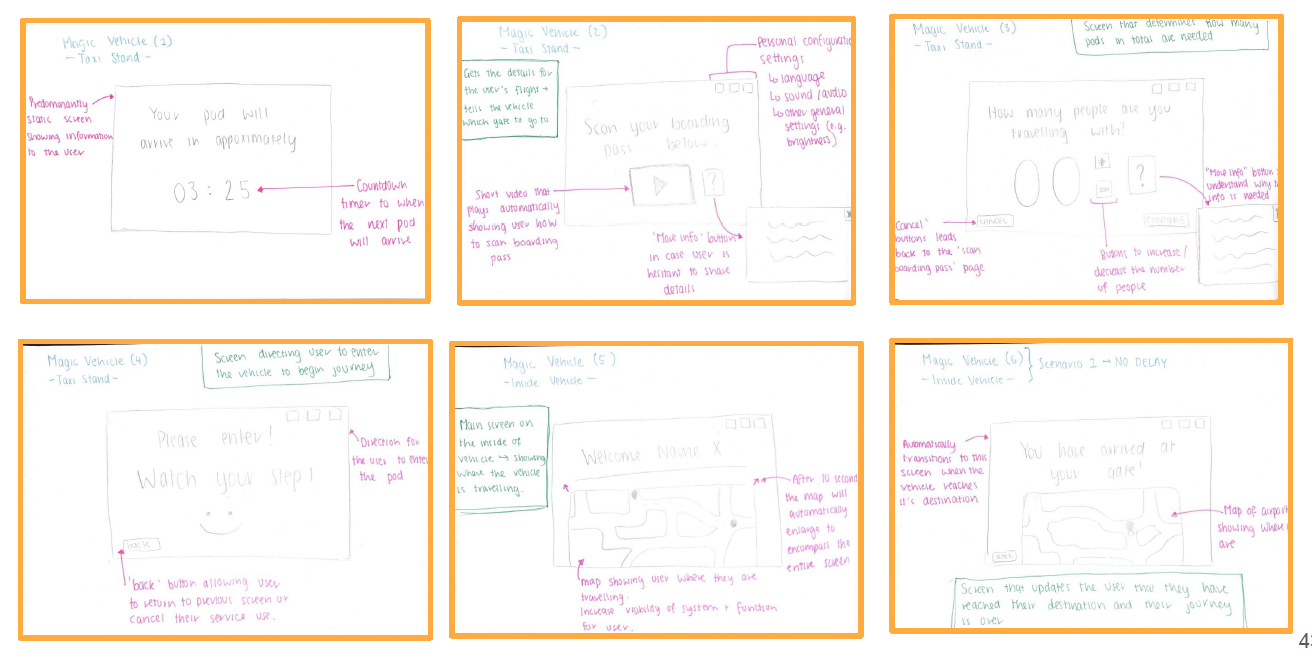 Magic Vehicle (1)
- Taxi Stand -
Predominantly
static screen
showing information
to the user
Your pod will
arrive in apporimately
03 : 25
Countdown
timer to when
the next pod
will arrive
Magic Vehicle (2)
- Taxi Stand -
Gets the details for
the user's flight →
tells the vehicle
which gate to go to
Personal configuratio
settings
↳ language
↳ sound / audio
↳ other general
settings (e.g.
brightness)
Scan your boarding
pass below...
?
Short video that
plays automatically
showing user how
to scan boarding
pass
'More info' button
in case user is
hesitant to share
details
x
Magic Vehicle (3)
- Taxi Stand -
Screen that determines how many
pods in total are needed
How many people are you
travelling with?
00
+
-
?
CANCEL
CONTINUE
"More info" button
understand why
info is needed
Cancel'
buttons leads
back to the 'scan
boarding pass' page
Buttons to increase /
decrease the number
of people
Magic Vehicle (4)
- Taxi Stand -
Screen directing user to enter
the vehicle to begin journey
Please enter!
Watch your step!
back
Direction for
the user to enter
the pod
'back' button allowing user
to return to previous screen or
cancel their service use.
Magic Vehicle (5)
- Inside Vehicle -
Main screen on
the inside of
vehicle → showing
where the vehicle
is travelling.
Welcome Name X
After 10 second
the map will
automatically
enlarge to
encompass the
entire screen
map showing user where they are
travelling.
Increase visibility of system + function
for user.
Magic Vehicle (6)
- Inside Vehicle -
Scenario 1 → NO DELAY
Automatically
transitions to this
screen when the
vehicle reaches
it's destination
You have arrived at
your gate!
BACK
Map of airport
showing where
are
Screen that updates the user that they have
reached their destination and their journey
is over